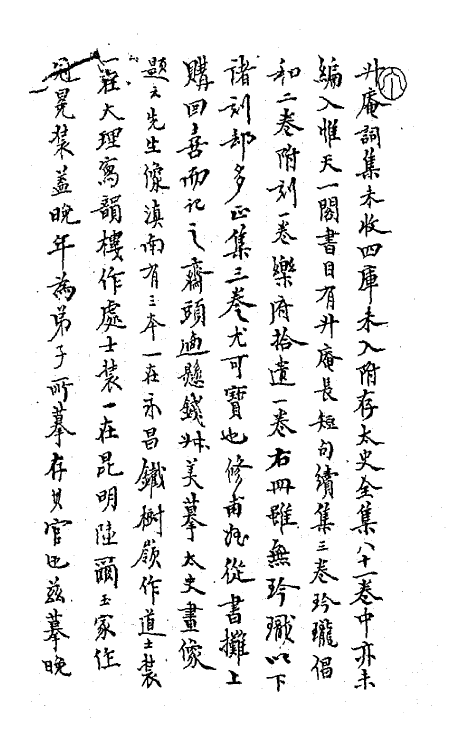 升庵詞集未收四庫未入附存太史全集八十一卷中亦未
編入惟天一閣書目有升庵長短句續集三卷玲瓏倡
和二卷附刻一卷樂府拾遺一卷右冊雖無玲瓏以下
諸刻却多正集三卷尤可寶也修甫從書攤上
購回喜而記之齋頭懸錢叔美摹太史畫像
題云先生像滇南有三本一在永昌鐵樹嶺作道士裝
一在大理寫韻樓作處士裝一在昆明陸爾玉家作
冠冕裝蓋晚年為弟子所摹存其官也茲摹晚